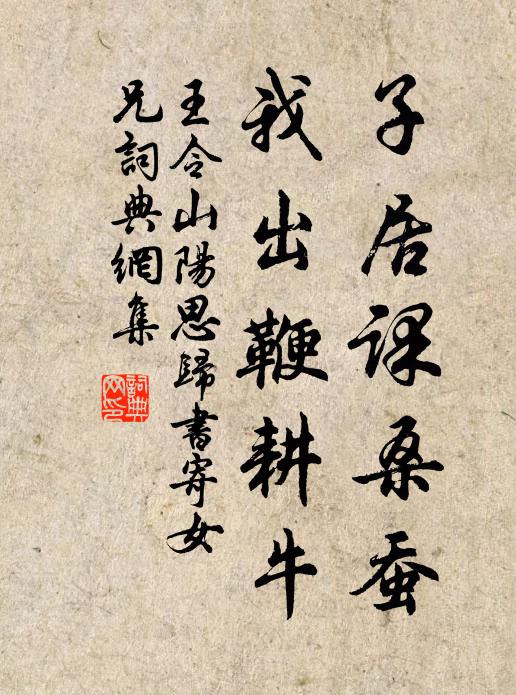 子居课桑蚕
我出鞭耕牛
王令山陽思歸書寄女
兄詞典網集
詞典网印